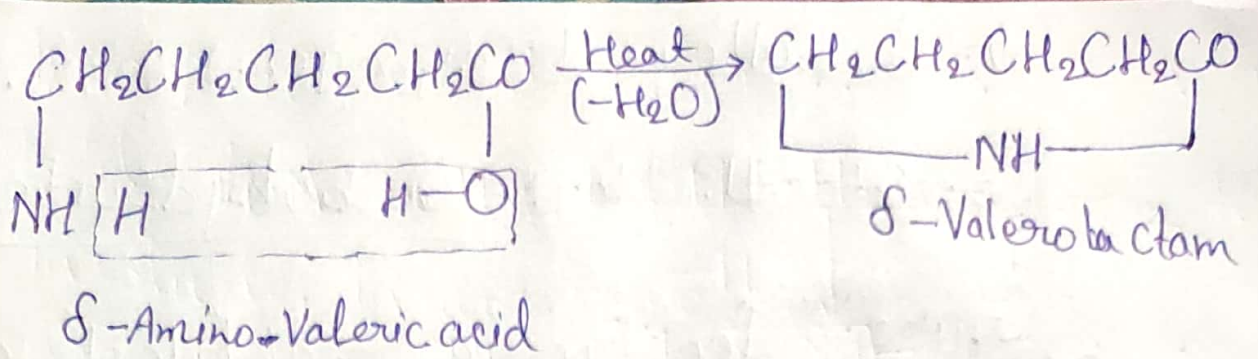 CH₂CH₂CH₂CH₂CO Heat (-H₂O) → CH₂CH₂CH₂CH₂CO
NH H H-O NH
δ-Valerolactam
δ-Amino-Valeric acid